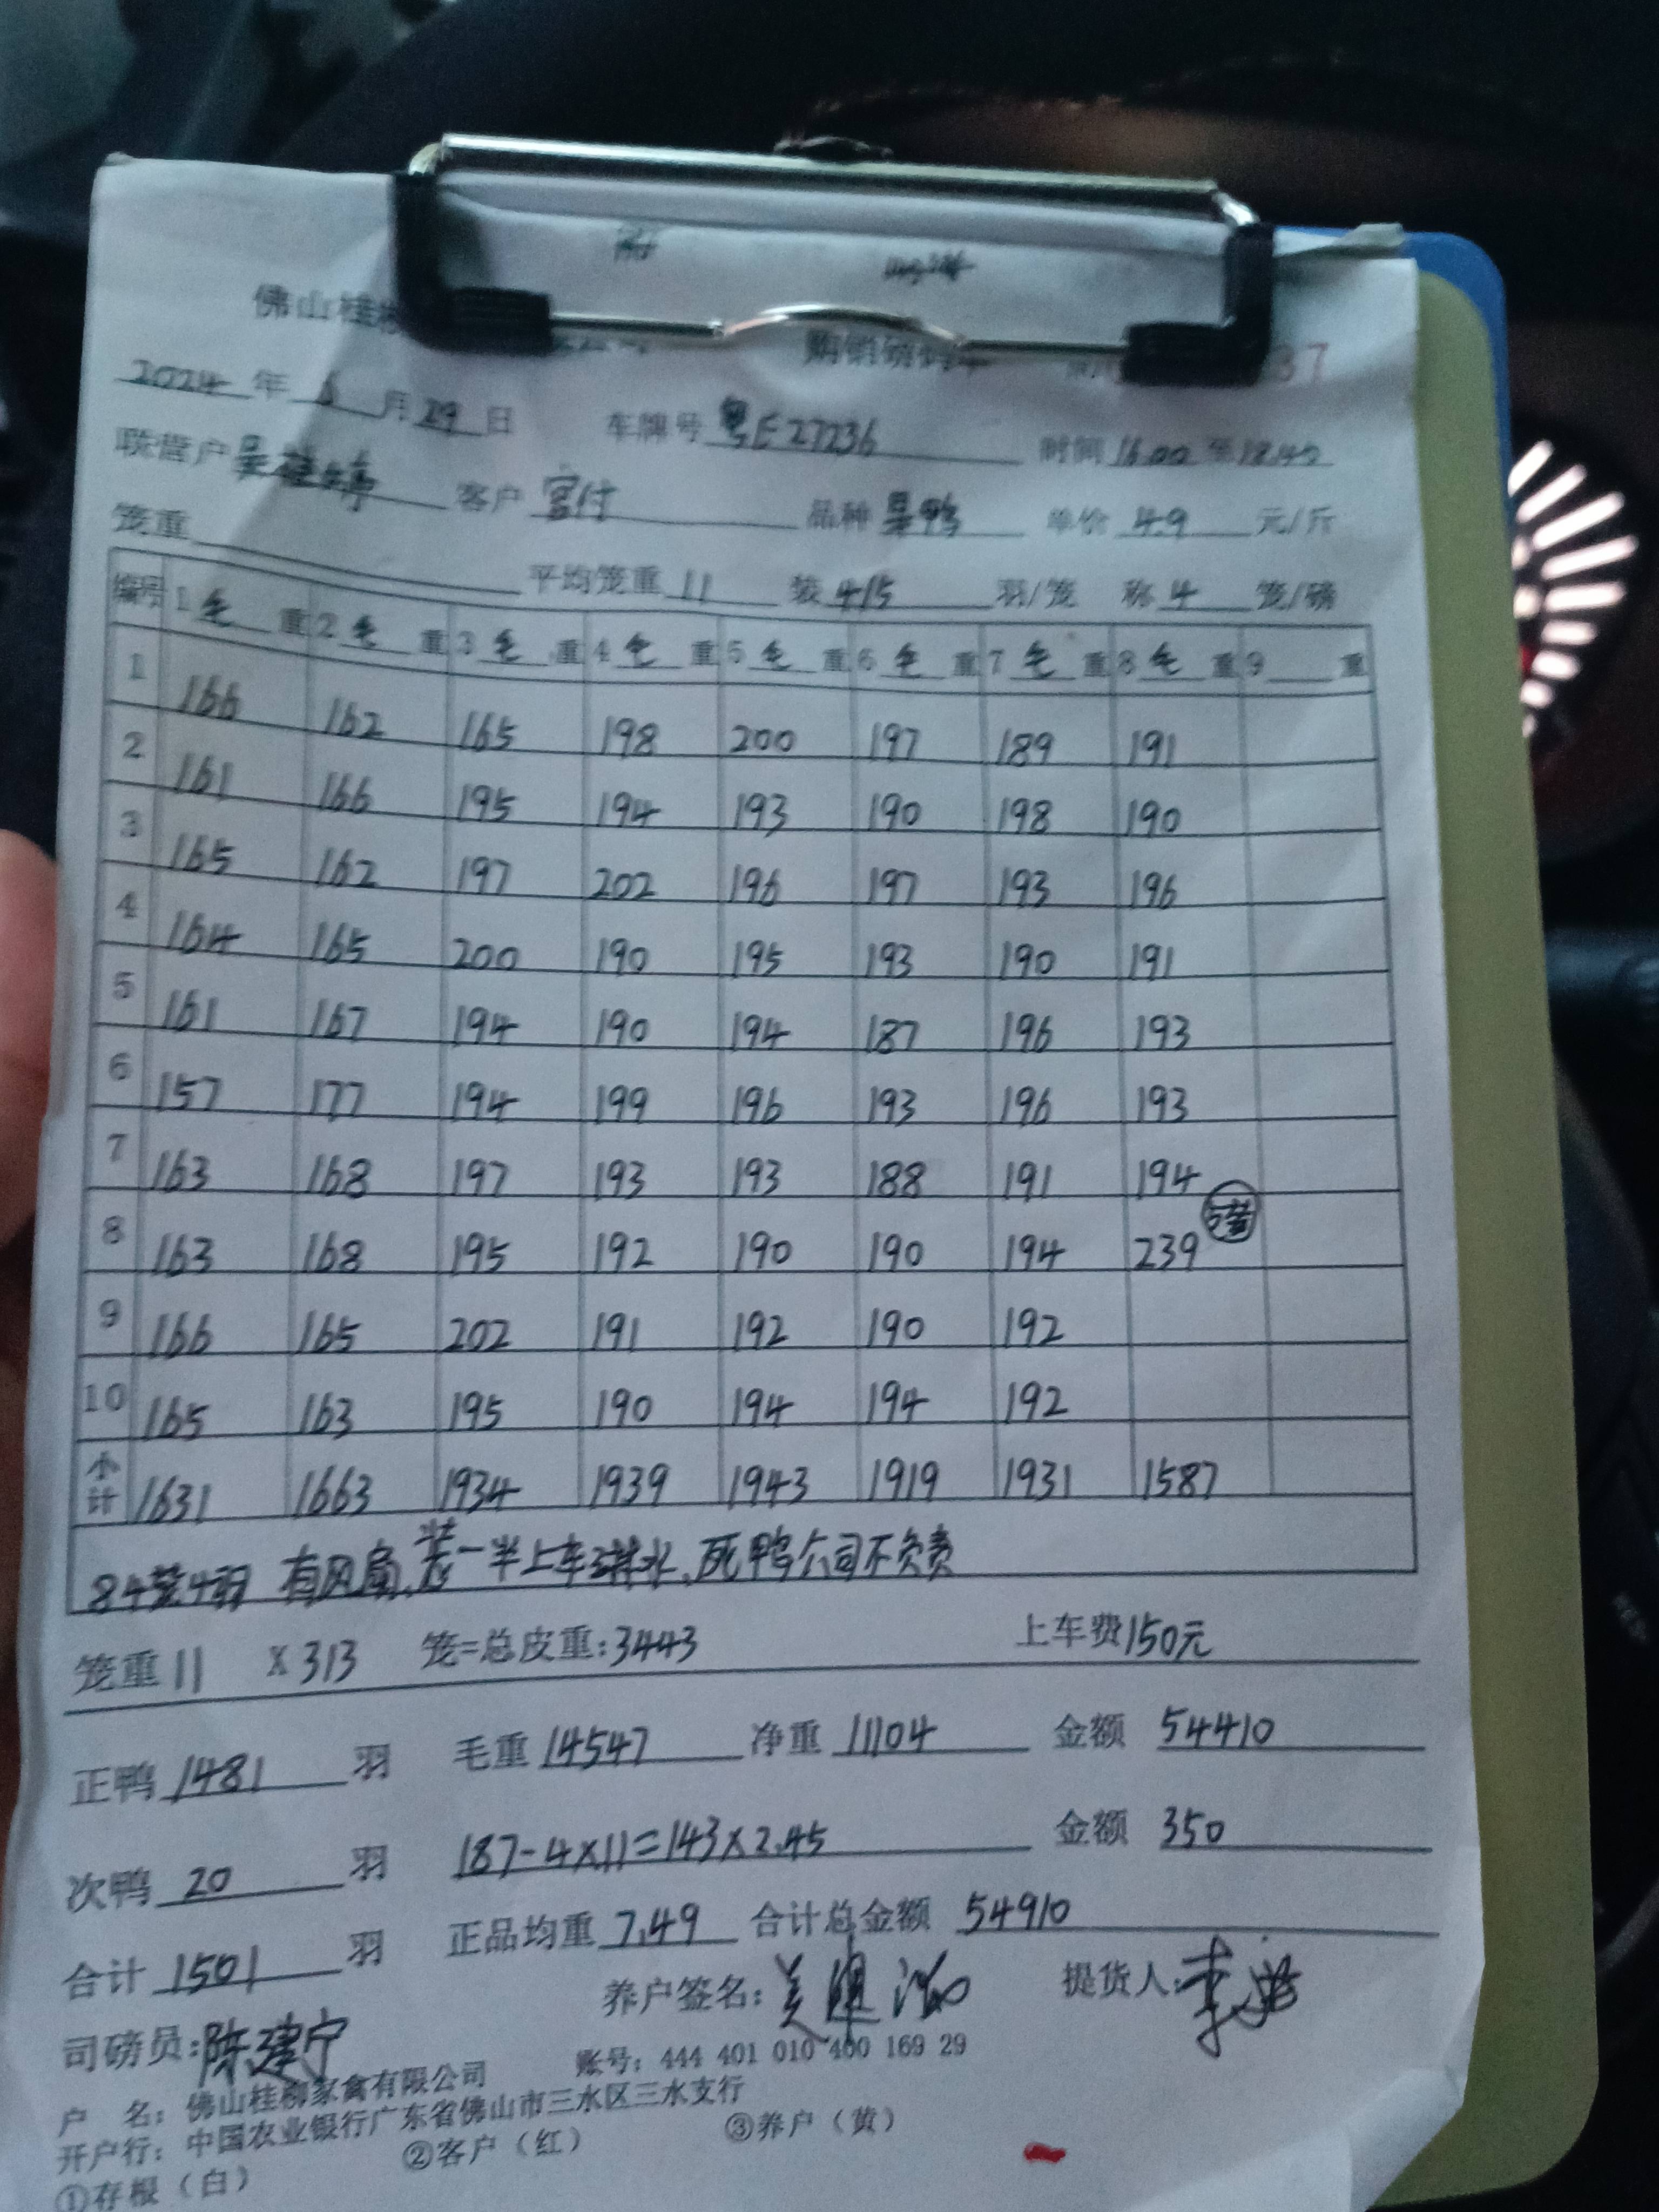 佛山桂柳 购销磅码单 37
2024 年 6 月 29 日 车牌号 粤E27236 时间 16:00 至 18:40
联营户 客户 富付 品种 单价 4.9 元/斤
笼重 平均笼重 11 装 4/5 羽/笼 称 4 笼/磅
编号 1 毛 重 2 毛 重 3 毛 重 4 毛 重 5 毛 重 6 毛 重 7 毛 重 8 毛 重 9 重
1 166 162 165 198 200 197 189 191
2 161 166 195 194 193 190 198 190
3 165 162 197 202 196 197 193 196
4 164 165 200 190 195 193 190 191
5 161 167 194 190 194 187 196 193
6 157 177 194 199 196 193 196 193
7 163 168 197 193 193 188 191 194
8 163 168 195 192 190 190 194 239 5笼
9 166 165 202 191 192 190 192
10 165 163 195 190 194 194 192
小计 1631 1663 1934 1939 1943 1919 1931 1587
84笼4羽 有风扇,装一半上车淋水,死鸭公司不负责
笼重 11 X 313 笼=总皮重:3443 上车费150元
正鸭 1481 羽 毛重 14547 净重 11104 金额 54410
次鸭 20 羽 187-4×11=143×2.45 金额 350
合计 1501 羽 正品均重 7.49 合计总金额 54910
司磅员:陈建宁 养户签名: 提货人:李
户 名: 佛山桂柳家禽有限公司 账号: 444 401 010 400 169 29
开户行: 中国农业银行广东省佛山市三水区三水支行
①存根（白） ②客户（红） ③养户（黄）